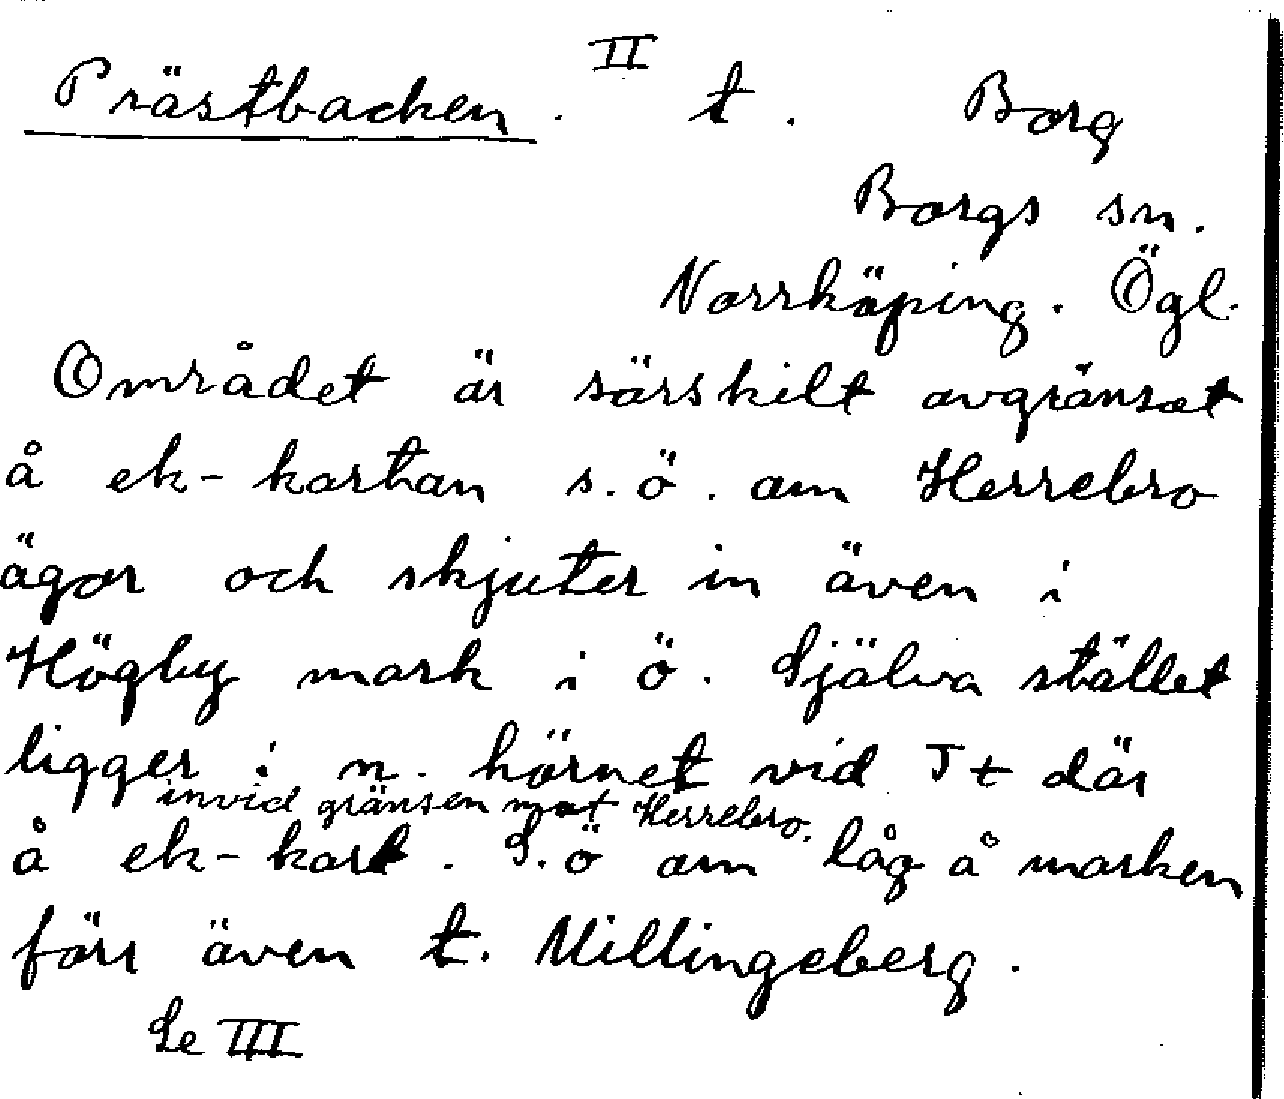 II
Prästbacken. t. Borg
Borgs sn.
Norrköping. Ögl.
Området är särskilt avgränsat
å ek-kartan s.ö. om Herrebro
ägor och skjuter in även i
Högby mark i ö. Själva stället
ligger i n. hörnet vid Tt där
invid gränsen mot Herrebro.
å ek-kart. S.ö om låg å marken
förr även t. Millingeberg.
Se III